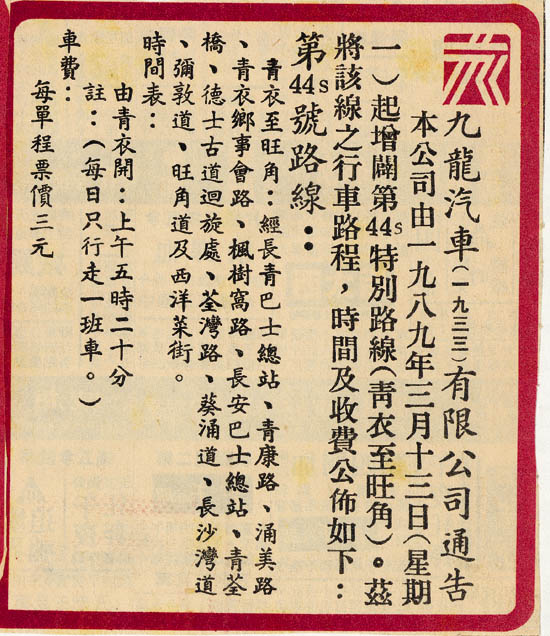 九龍汽車(一九三三)有限公司通告
本公司由一九八九年三月十三日(星期
一)起增闢第44s特別路線(青衣至旺角)。茲
將該線之行車路程，時間及收費公佈如下：
第44s號路線：
青衣至旺角：經長青巴士總站、青康路、涌美路
、青衣鄉事會路、楓樹窩路、長安巴士總站、青荃
橋、德士古道迴旋處、荃灣路、葵涌道、長沙灣道
、彌敦道、旺角道及西洋菜街。
時間表：
由青衣開：上午五時二十分
註：(每日只行走一班車。)
車費：
每單程票價三元